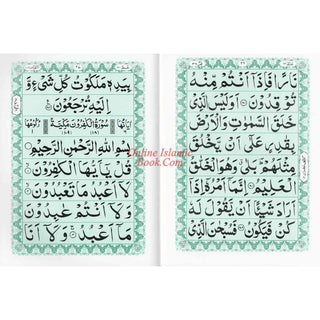 نَارًا فَإِذَآ أَنْتُمْ مِّنْهُ
تُوْقِدُوْنَ ۝ أَوَلَيْسَ الَّذِيْ
خَلَقَ السَّمٰوٰتِ وَالْأَرْضَ
بِقٰدِرٍ عَلٰٓى أَنْ يَّخْلُقَ
مِثْلَهُمْ ؕ بَلٰى وَهُوَ الْخَلّٰقُ
الْعَلِيْمُ ۝ إِنَّمَآ أَمْرُهٗٓ إِذَآ
أَرَادَ شَيْئًا أَنْ يَّقُوْلَ لَهٗ
كُنْ فَيَكُوْنُ ۝ فَسُبْحٰنَ الَّذِيْ
بِيَدِهٖ مَلَكُوْتُ كُلِّ شَيْءٍ وَّ
إِلَيْهِ تُرْجَعُوْنَ ۝
سُوْرَةُ الْكٰفِرُوْنَ مَكِّيَّةٌ
بِسْمِ اللّٰهِ الرَّحْمٰنِ الرَّحِيْمِ
قُلْ يٰٓأَيُّهَا الْكٰفِرُوْنَ ۝
لَآ أَعْبُدُ مَا تَعْبُدُوْنَ ۝
وَلَآ أَنْتُمْ عٰبِدُوْنَ
مَآ أَعْبُدُ ۝ وَلَآ أَنَا
Online Islamic
Book.Com